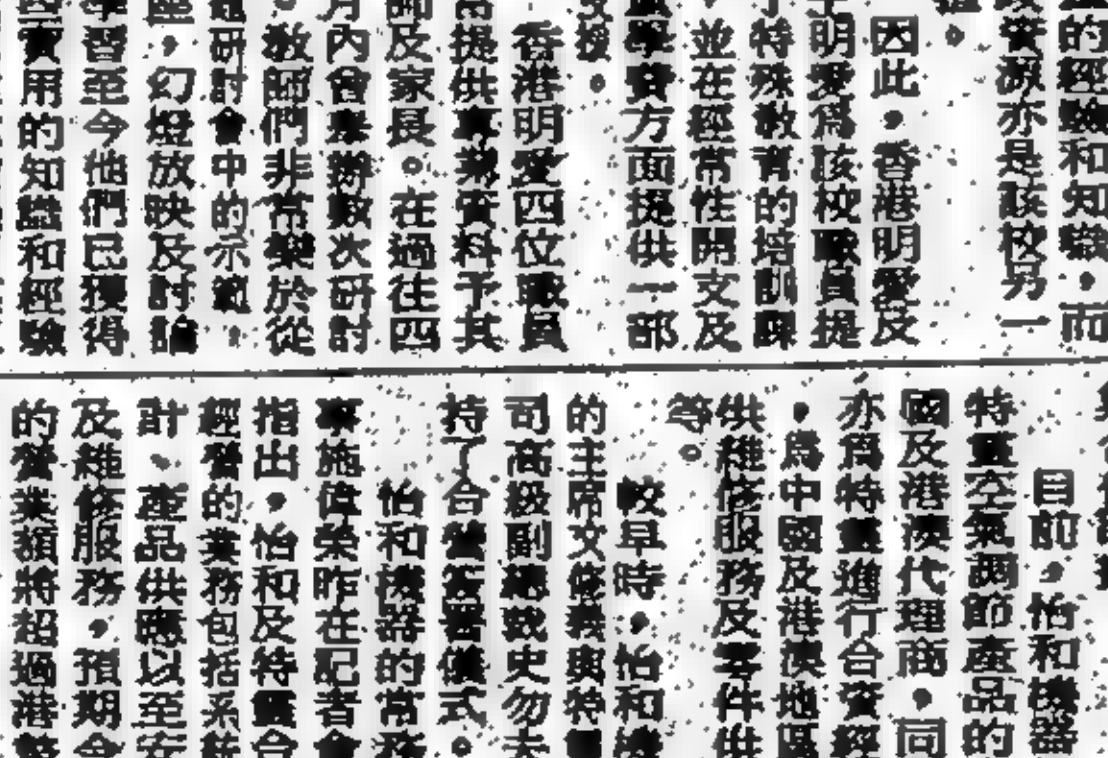 的經驗和知識，而
資源亦是該校另一
因此，香港明愛反
明愛為該校職員提
特殊教育的培訓課
並在經常性開支及
方面提供一部
香港明愛四位職員
提供專業資料予其
及家長。在過往四
月內會舉辦數次研討
教師們非常樂於從
研討會中的示範，
，幻燈放映及討論
學習至今他們已獲得
實用的知識和經驗
目前，怡和機器
特靈空氣調節產品的
國及港澳代理商，同
亦為特靈進行合資經
，為中國及港澳地區
供維修服務及零件供
等。
較早時，怡和機
的主席文修義與特靈
司高級副總裁史勿夫
持了合營簽署儀式。
怡和機器的常務
事施偉榮昨在記者會
指出，怡和及特靈合
經營的業務包括系統
計，產品供應以至安
及維修服務，預期今
的營業額將超過港幣